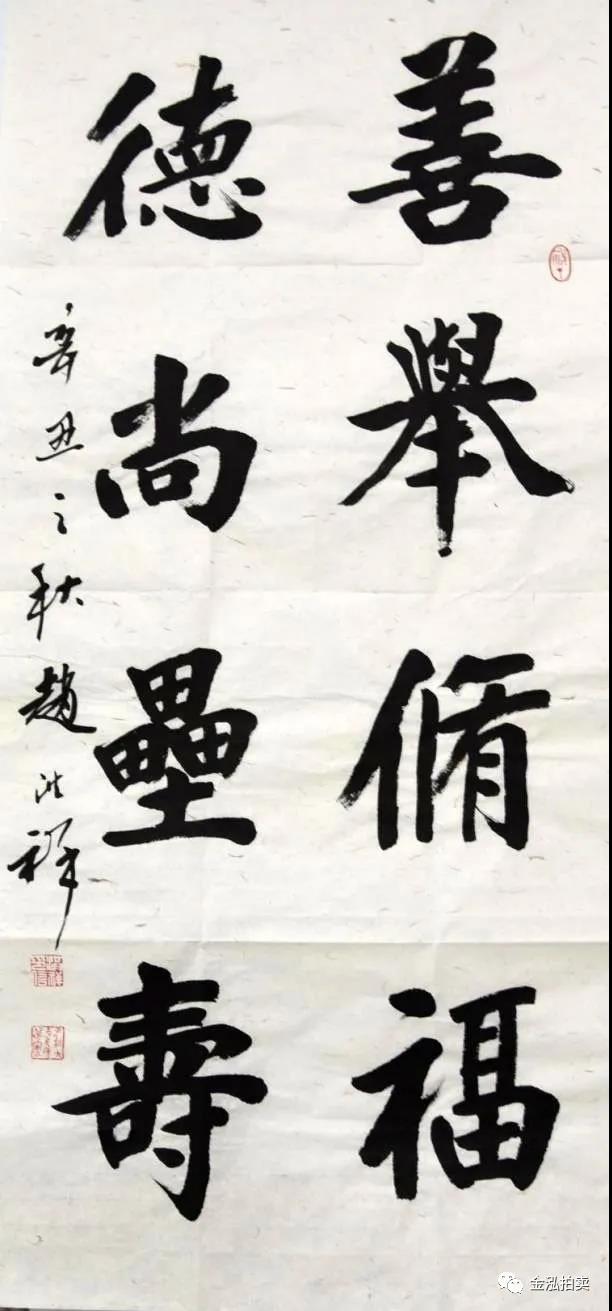 善舉脩福
德尚壘壽
辛丑之秋趙洪祥
金泓拍卖